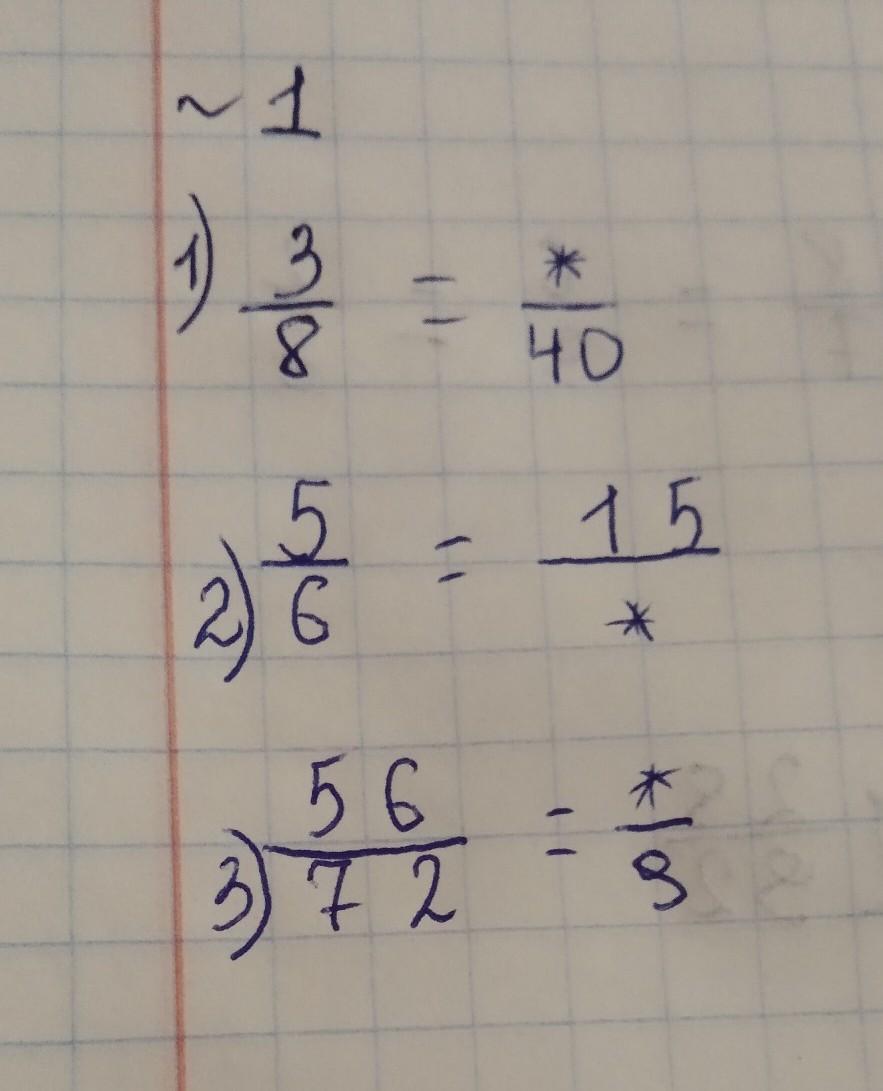 ~ 1
1) 3/8 = */40
2) 5/6 = 15/*
3) 56/72 = */9